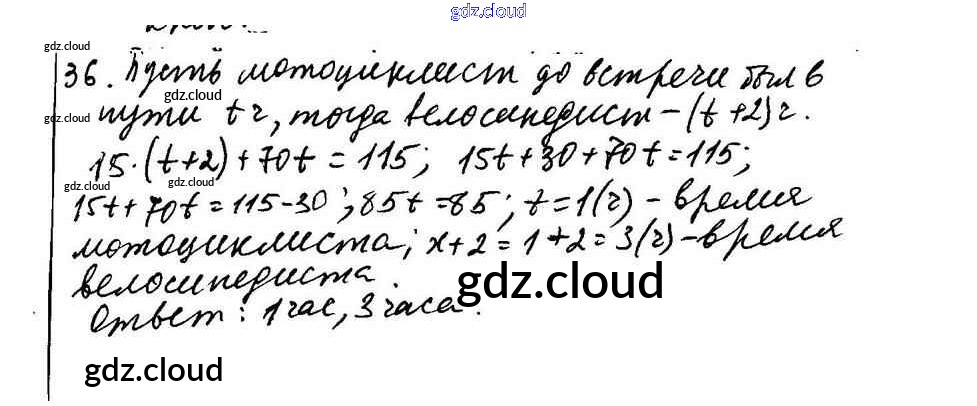 gdz.cloud
gdz.cloud
36. Пусть мотоциклист до встречи был в
gdz.cloud
gdz.cloud
пути t ч, тогда велосипедист – (t+2) ч.
15·(t+2)+70t=115; 15t+30+70t=115;
gdz.cloud
gdz.cloud
15t+70t=115-30; 85t=85; t=1(ч) – время
мотоциклиста; x+2=1+2=3(ч) – время
велосипедиста.
gdz.cloud
Ответ: 1 час, 3 часа.
gdz.cloud